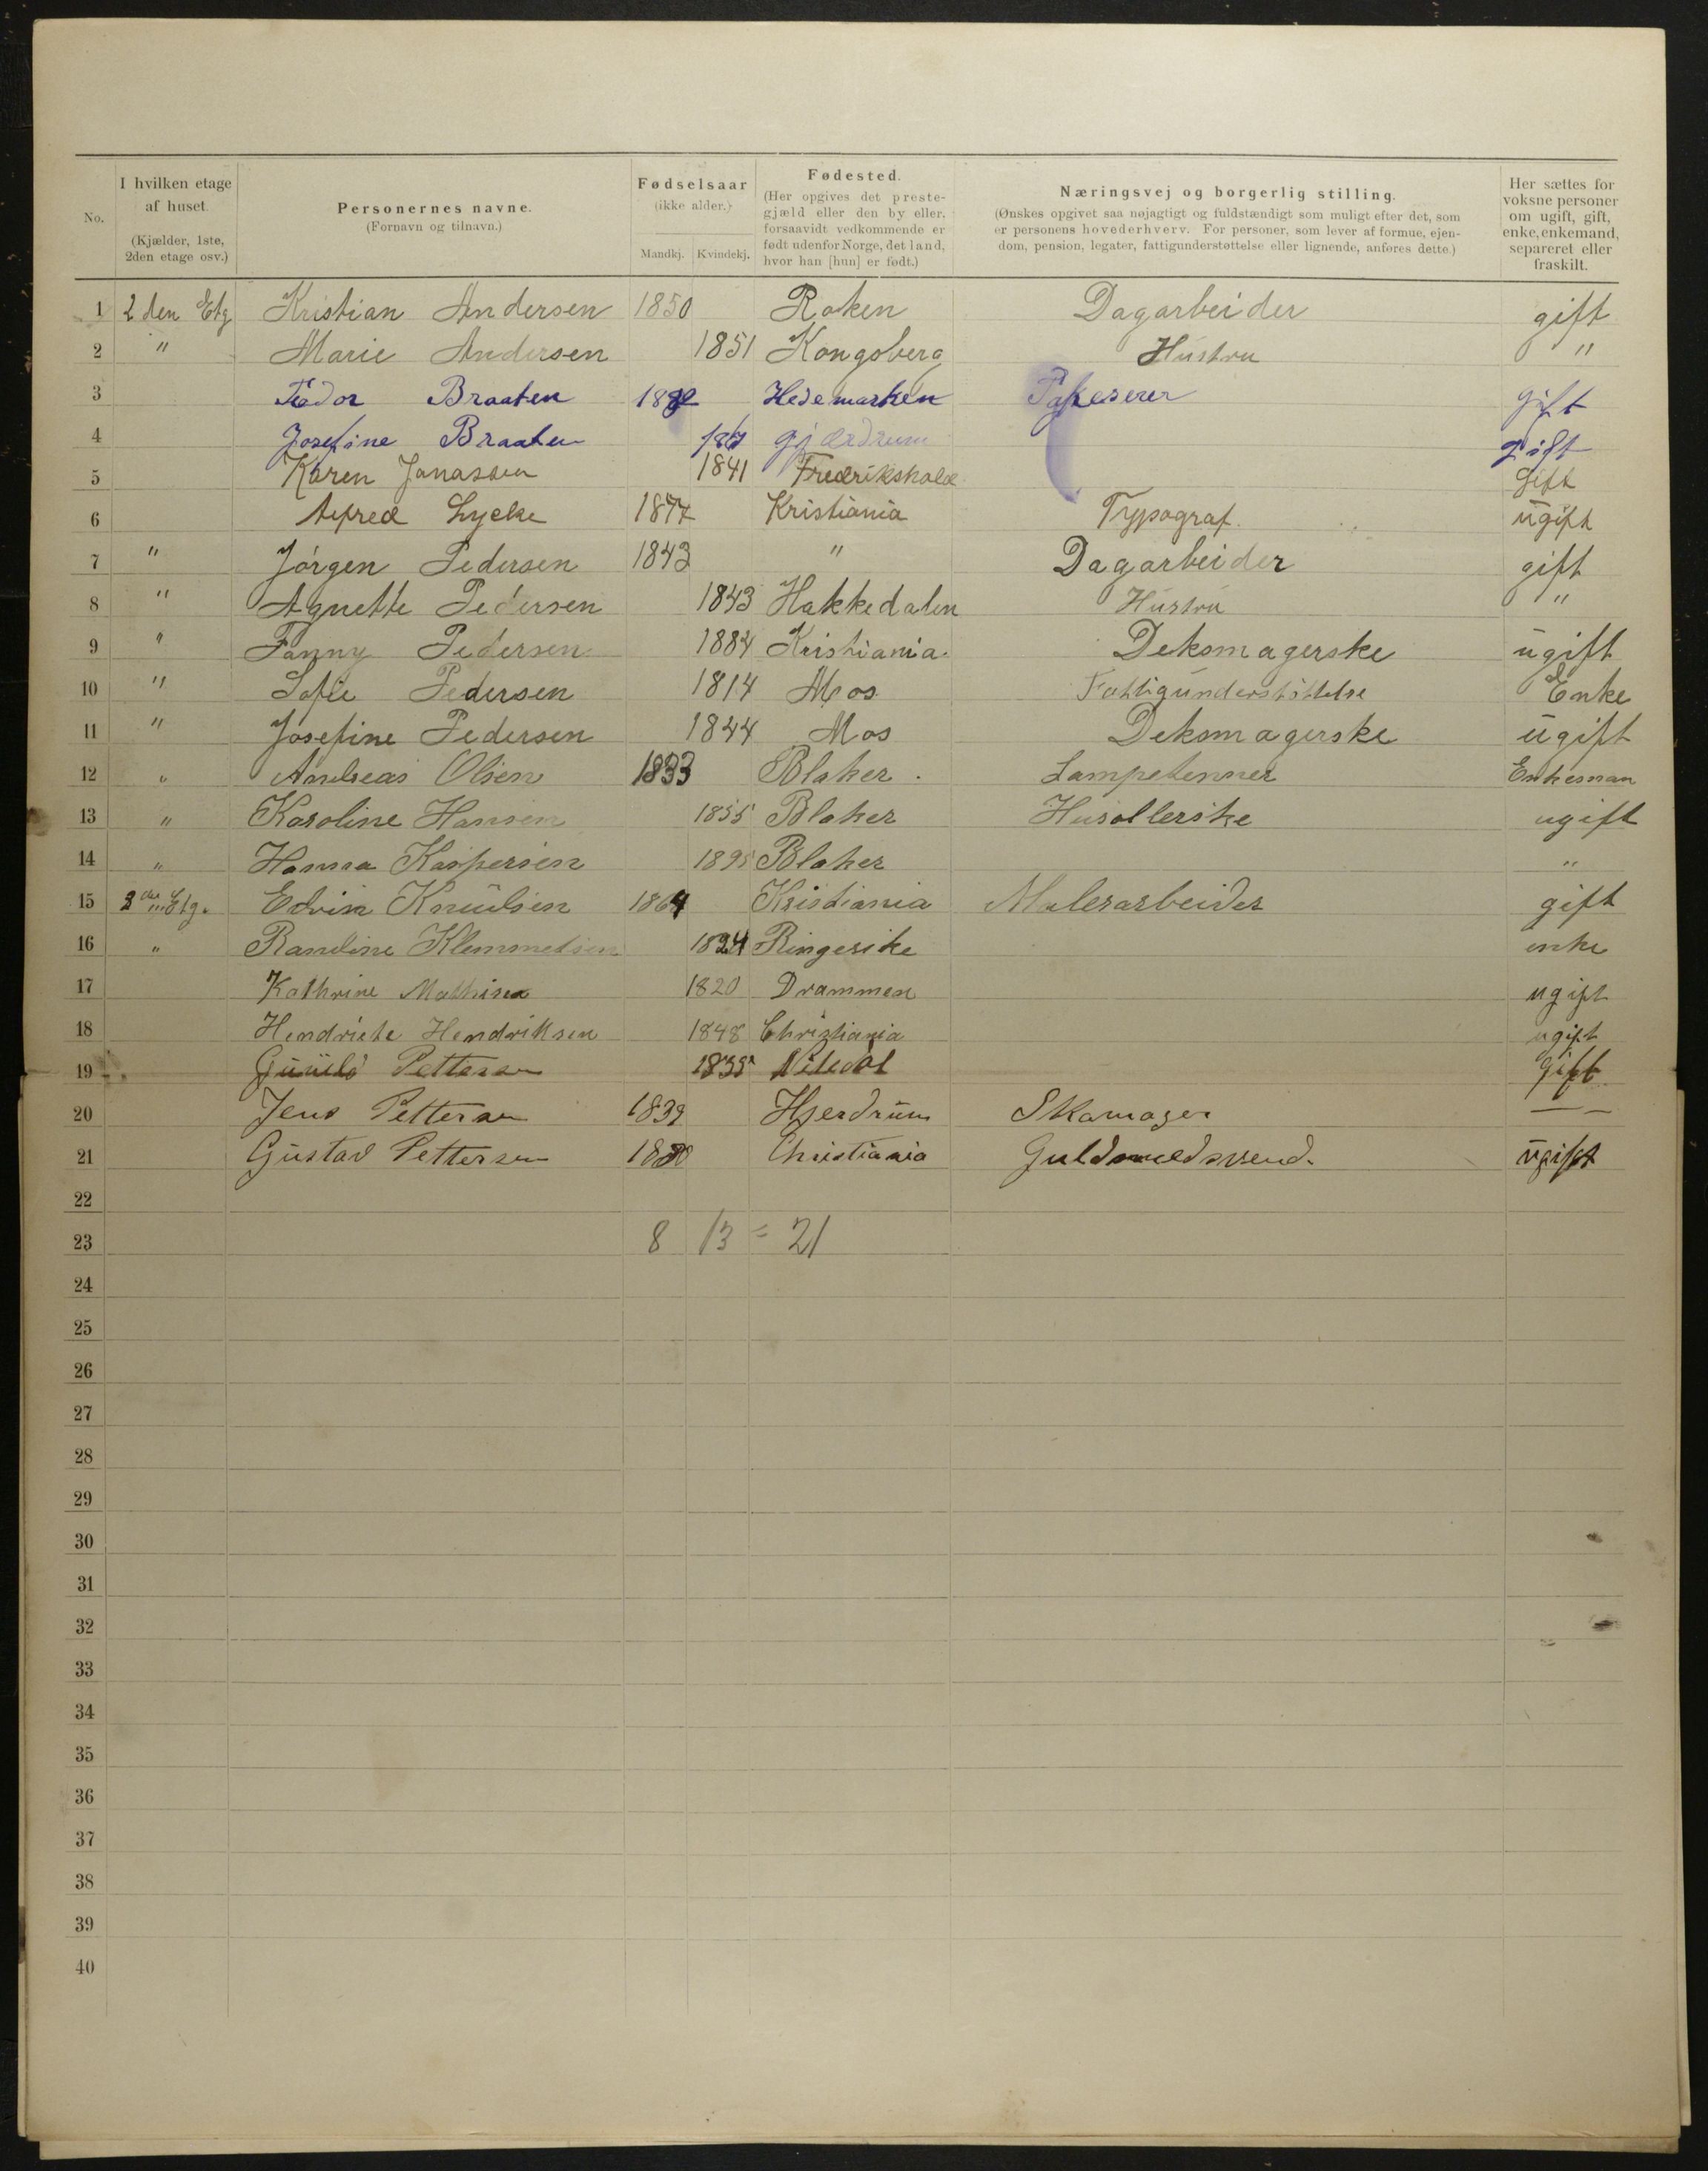 No.
I hvilken etage af huset.
(Kjælder, 1ste, 2den etage osv.)
Personernes navne.
(Fornavn og tilnavn.)
Fødselsaar
(ikke alder.)
Mandkj. Kvindekj.
Fødested.
(Her opgives det preste-
gjæld eller den by eller,
forsaavidt vedkommende er
født udenfor Norge, det land,
hvor han [hun] er født.)
Næringsvej og borgerlig stilling.
(Ønskes opgivet saa nøjagtigt og fuldstændigt som muligt efter det, som
er personens hovederhverv. For personer, som lever af formue, ejen-
dom, pension, legater, fattigunderstøttelse eller lignende, anføres dette.)
Her sættes for
voksne personer
om ugift, gift,
enke, enkemand,
separeret eller
fraskilt.
1 2 den Etg Kristian Andersen 1850 Røken Dagarbeider gift
2 " Marie Andersen 1851 Kongsberg Hustru "
3 Braaten Hedemarken gift
4 Josefine Braaten gjærdrum gift
5 Karen Jonassen 1841 Fredrikshald Gift
6 Alfred Lycke 1877 Kristiania Typograf. ugift
7 " Jørgen Pedersen 1843 " Dagarbeider gift
8 " Agnethe Pedersen 1843 Hakkedalen Hustru "
9 " Fanny Pedersen 1884 Kristiania. Deksmagerske ugift
10 " Sofie Pedersen 1814 Mos Fattigunderstøttelse Enke
11 " Josefine Pedersen 1844 Mos Deksmagerske ugift
12 " Andreas Olsen 1833 Blaker. Lampetenner Enkeman
13 " Karoline Hansen 1855 Blaker Husollerske ugift
14 " Hanna Kaspersen 1895 Blaker "
15 Etg. Edvin Knudsen 1864 Kristiania Malerarbeider gift
16 " Randine Klemmetsen 1824 Ringerike enke
17 Kathrine Mathisen 1820 Drammen ugift
18 Hendriete Hendriksen 1848 Christiania ugift
19 Pettersen 1835 Nitedal gift
20 Jens Pettersen 1839 Hjerdrum Skomager —
21 Gustav Pettersen 1880 Christiania Guldsmedsvend. ugift
22
23 8 13 = 21
24
25
26
27
28
29
30
31
32
33
34
35
36
37
38
39
40